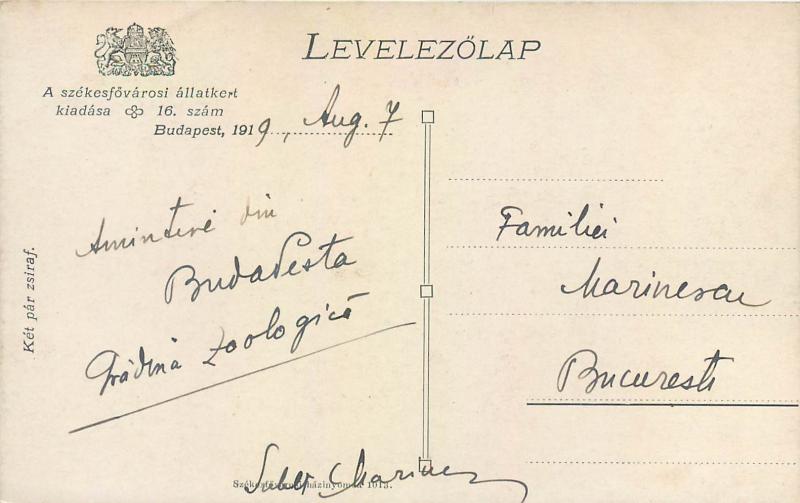 LEVELEZŐLAP
A székesfővárosi állatkert
kiadása 16. szám
Budapest, 1919, Aug. 7
Amintiri din
Budapesta
Grădina zoologică
Familiei
Marinescu
Bucuresti
Két pár zsiraf.
Székesfővárosi házinyomda 1913.